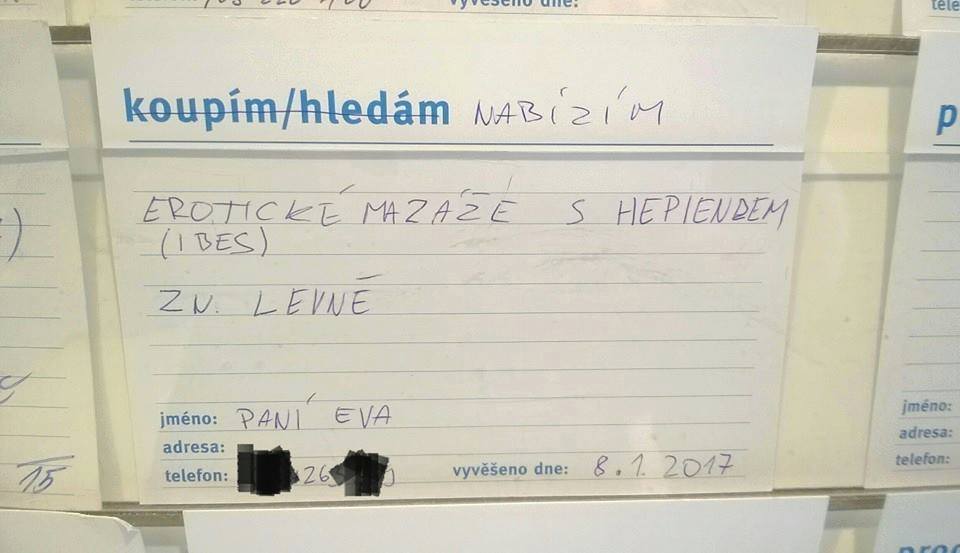 vyvěšeno dne:
koupím/hledám NABÍZÍM
EROTICKÉ MAZÁŽE S HEPIENDEM
(I BES)
ZN. LEVNĚ
jméno: PANÍ EVA
adresa:
telefon: 26
vyvěšeno dne: 8.1.2017
15
jméno:
adresa:
telefon: